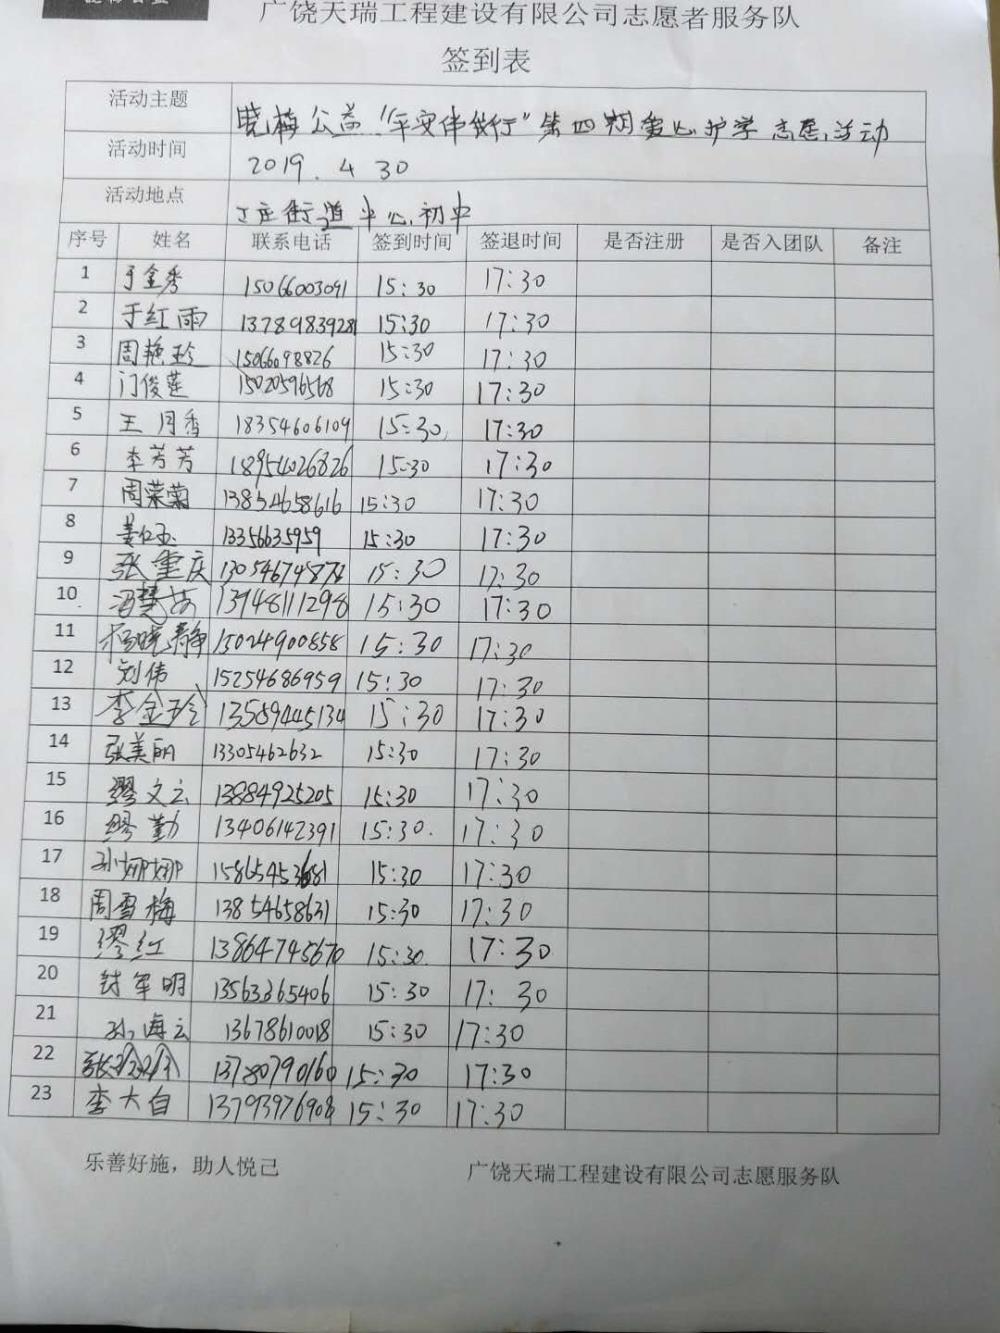 广饶天瑞工程建设有限公司志愿者服务队
签到表
活动主题 晓梅公益"平安伴我行"第四期爱心护学志愿活动
活动时间 2019.4 30
活动地点 丁庄街道中心初中
序号 姓名 联系电话 签到时间 签退时间 是否注册 是否入团队 备注
1 于金秀 15066003091 15:30 17:30
2 于红雨 13789839281 15:30 17:30
3 周艳玲 15066098826 15:30 17:30
4 门俊莲 15020596568 15:30 17:30
5 王月香 18354606109 15:30 17:30
6 李芳芳 18954026826 15:30 17:30
7 周荣菊 13854658616 15:30 17:30
8 姜红玉 13356635959 15:30 17:30
9 张重庆 13054674874 15:30 17:30
10 冯慧 13948111298 15:30 17:30
11 杨晓静 15024900858 15:30 17:30
12 刘伟 15254686959 15:30 17:30
13 李金玲 13589445134 15:30 17:30
14 张美丽 13305462632 15:30 17:30
15 缪文云 13884925205 15:30 17:30
16 缪勤 13406142391 15:30. 17:30
17 孙娜娜 15865453681 15:30 17:30
18 周雪梅 13854658631 15:30 17:30
19 缪红 13864745670 15:30 17:30
20 封军明 13563365406 15:30 17:30
21 孙海云 13678610018 15:30 17:30
22 张玲玲 13780790160 15:30 17:30
23 李大自 13793976908 15:30 17:30
乐善好施，助人悦己 广饶天瑞工程建设有限公司志愿服务队